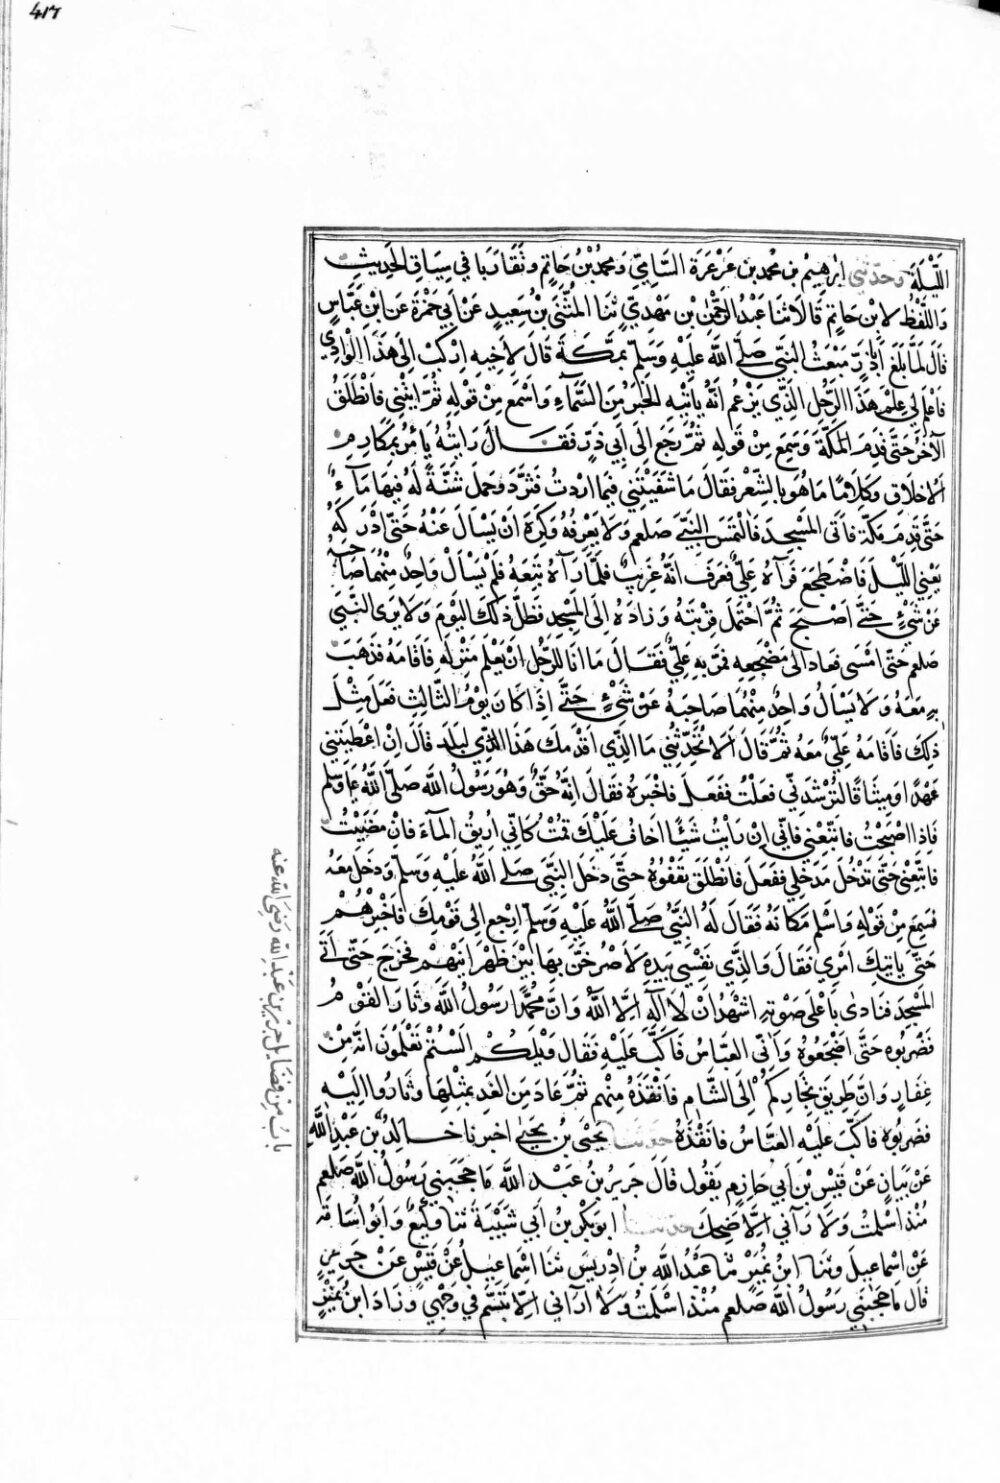 417
اللَّيْلَة وحدثني ابراهيم بن محمد بن عرعرة السامي ومحمد بن حاتم وتقاربا في سياق الحديث
واللفظ لابن حاتم قالا ثنا عبد الرحمن بن مهدي ثنا المثنى بن سعيد عن ابي حمزة عن ابن عباس
قال لما بلغ اباذر مبعث النبي صلى الله عليه وسلم بمكة قال لاخيه اركب الى هذا الوادي
فاعلم لي علم هذا الرجل الذي يزعم انه ياتيه الخبر من السمآء واسمع من قوله ثم ائتني فانطلق
الآخر حتى قدم المكة وسمع من قوله ثم رجع الى ابي ذر فقال رايته يأمر بمكارم
الاخلاق وكلاما ما هو بالشعر فقال ما شفيتني فيما اردت فتزود وحمل شنة له فيها مآء
حتى قدم مكة فاتى المسجد فالتمس النبي صلعم ولا يعرفه وكره ان يسال عنه حتى ادركه
يعني الليل فاضطجع فرآه علي فعرف انه غريب فلما رآه تبعه فلم يسال واحد منهما صاحبه
عن شيء حتى اصبح ثم احتمل قربته وزاده الى المسجد فظل ذلك اليوم ولا يرى النبي
صلعم حتى امسى فعاد الى مضجعه فمر به علي فقال ما انا للرجل ان يعلم منزله فاقامه فذهب
به معه ولا يسال واحد منهما صاحبه عن شيء حتى اذا كان يوم الثالث فعل مثل
ذلك فاقامه علي معه ثم قال الا تحدثني ما الذي اقدمك هذا البلد قال ان اعطيتني
عهدا وميثاقا لترشدني فعلت ففعل فاخبره فقال انه حق وهو رسول الله صلى الله عليه وسلم
فاذا اصبحت فاتبعني فاني ان رايت شيئا اخاف عليك قمت كاني اريق المآء فان مضيت
فاتبعني حتى تدخل مدخلي ففعل فانطلق يقفوه حتى دخل النبي صلى الله عليه وسلم ودخل معه
فسمع من قوله واسلم مكانه فقال له النبي صلى الله عليه وسلم ارجع الى قومك فاخبرهم
حتى ياتيك امري فقال والذي نفسي بيده لاصرخن بها بين ظهرانيهم فخرج حتى اتى
المسجد فنادى باعلى صوته اشهد ان لا اله الا الله وان محمدا رسول الله وثار القوم
فضربوه حتى اضجعوه واتى العباس فاكب عليه فقال ويلكم الستم تعلمون انه من
غفار وان طريق تجاركم الى الشام فانقذه منهم ثم عاد من الغد بمثلها وثاروا اليه
فضربوه فاكب عليه العباس فانقذه حدثنا يحيى بن يحيى اخبرنا خالد بن عبد الله
عن بيان عن قيس بن ابي حازم يقول قال جرير بن عبد الله ما حجبني رسول الله صلعم
منذ اسلمت ولا رآني الا ضحك حدثنا ابو بكر بن ابي شيبة ثنا وكيع وابو اسامة
عن اسماعيل وثنا ابن نمير ثنا عبد الله بن ادريس ثنا اسماعيل عن قيس عن جرير
قال ما حجبني رسول الله صلعم منذ اسلمت ولا ارآني الا تبسم في وجهي وزاد ابن نمير
باب من فضايل جرير بن عبد الله رضي الله عنه